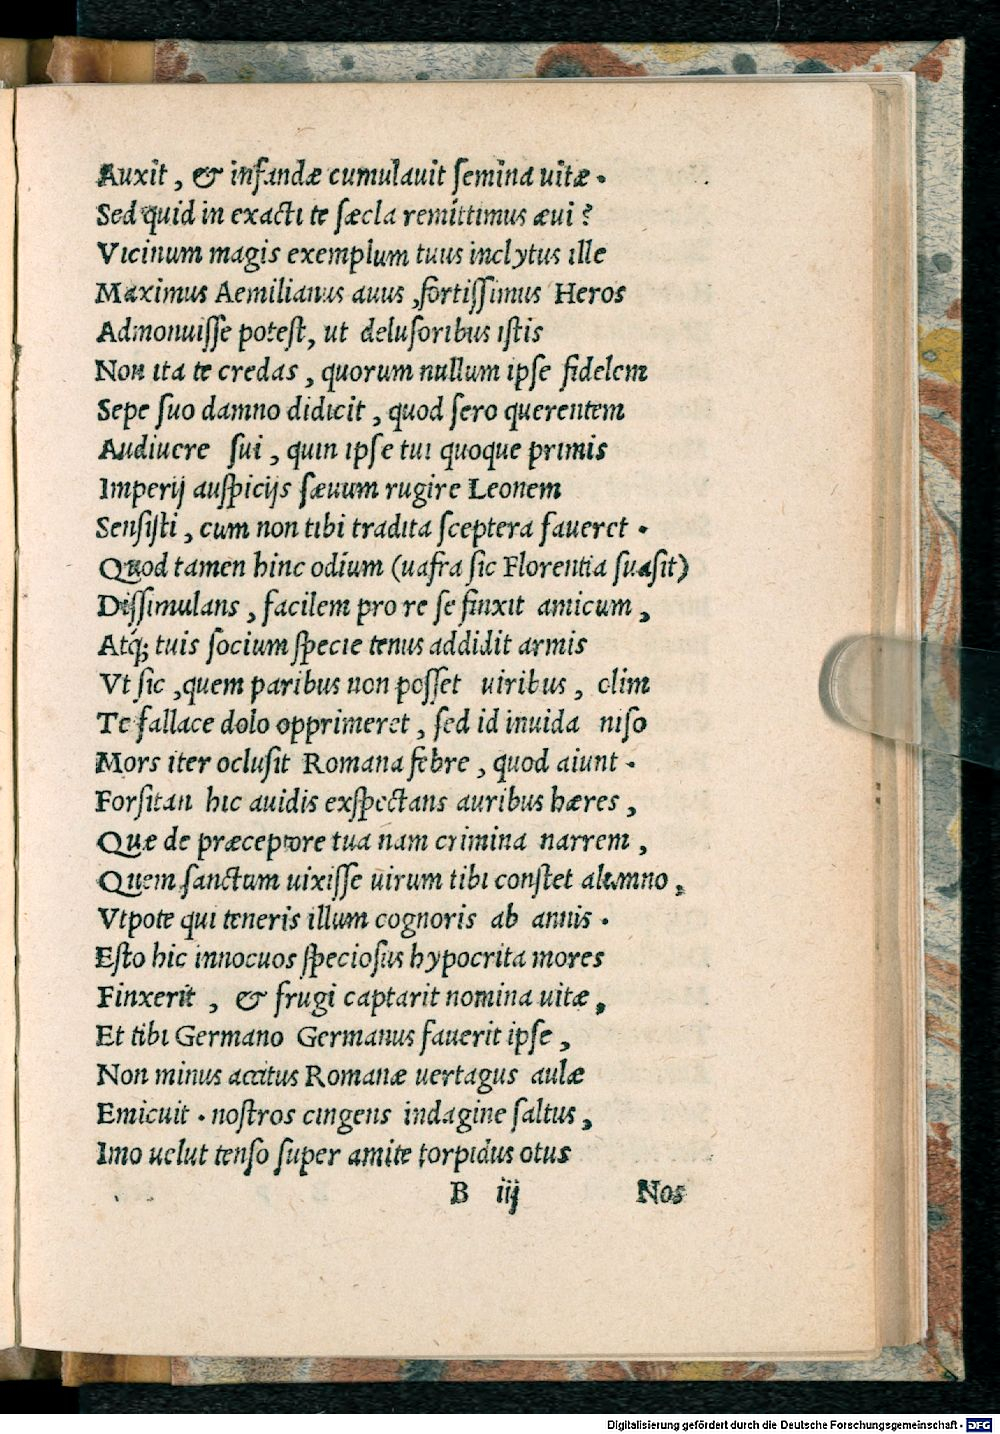 Auxit, & infandæ cumulauit ſemina uitæ.
Sed quid in exacti te ſæcla remittimus æui?
Vicinum magis exemplum tuus inclytus ille
Maximus Aemilianus auus, fortiſſimus Heros
Admonuiſſe poteſt, ut deluſoribus iſtis
Non ita te credas, quorum nullum ipſe fidelem
Sepe ſuo damno didicit, quod ſero querentem
Audiuere ſui, quin ipſe tui quoque primis
Imperij auſpicijs ſæuum rugire Leonem
Senſiſti, cum non tibi tradita ſceptera faueret.
Quod tamen hinc odium (uafra ſic Florentia ſuaſit)
Diſſimulans, facilem pro re ſe finxit amicum,
Atq; tuis ſocium ſpecie tenus addidit armis
Vt ſic, quem paribus non poſſet uiribus, olim
Te fallace dolo opprimeret, ſed id inuida niſo
Mors iter ocluſit Romana febre, quod aiunt.
Forſitan hic auidis exſpectans auribus hæres,
Quæ de præceptore tua nam crimina narrem,
Quem ſanctum uixiſſe uirum tibi conſtet alumno,
Vtpote qui teneris illum cognoris ab annis.
Eſto hic innocuos ſpecioſus hypocrita mores
Finxerit, & frugi captarit nomina uitæ,
Et tibi Germano Germanus fauerit ipſe,
Non minus accitus Romanæ uertagus aulæ
Emicuit. noſtros cingens indagine ſaltus,
Imo uelut tenſo ſuper amite torpidus otus
B iij Nos
Digitalisierung gefördert durch die Deutsche Forschungsgemeinschaft - DFG